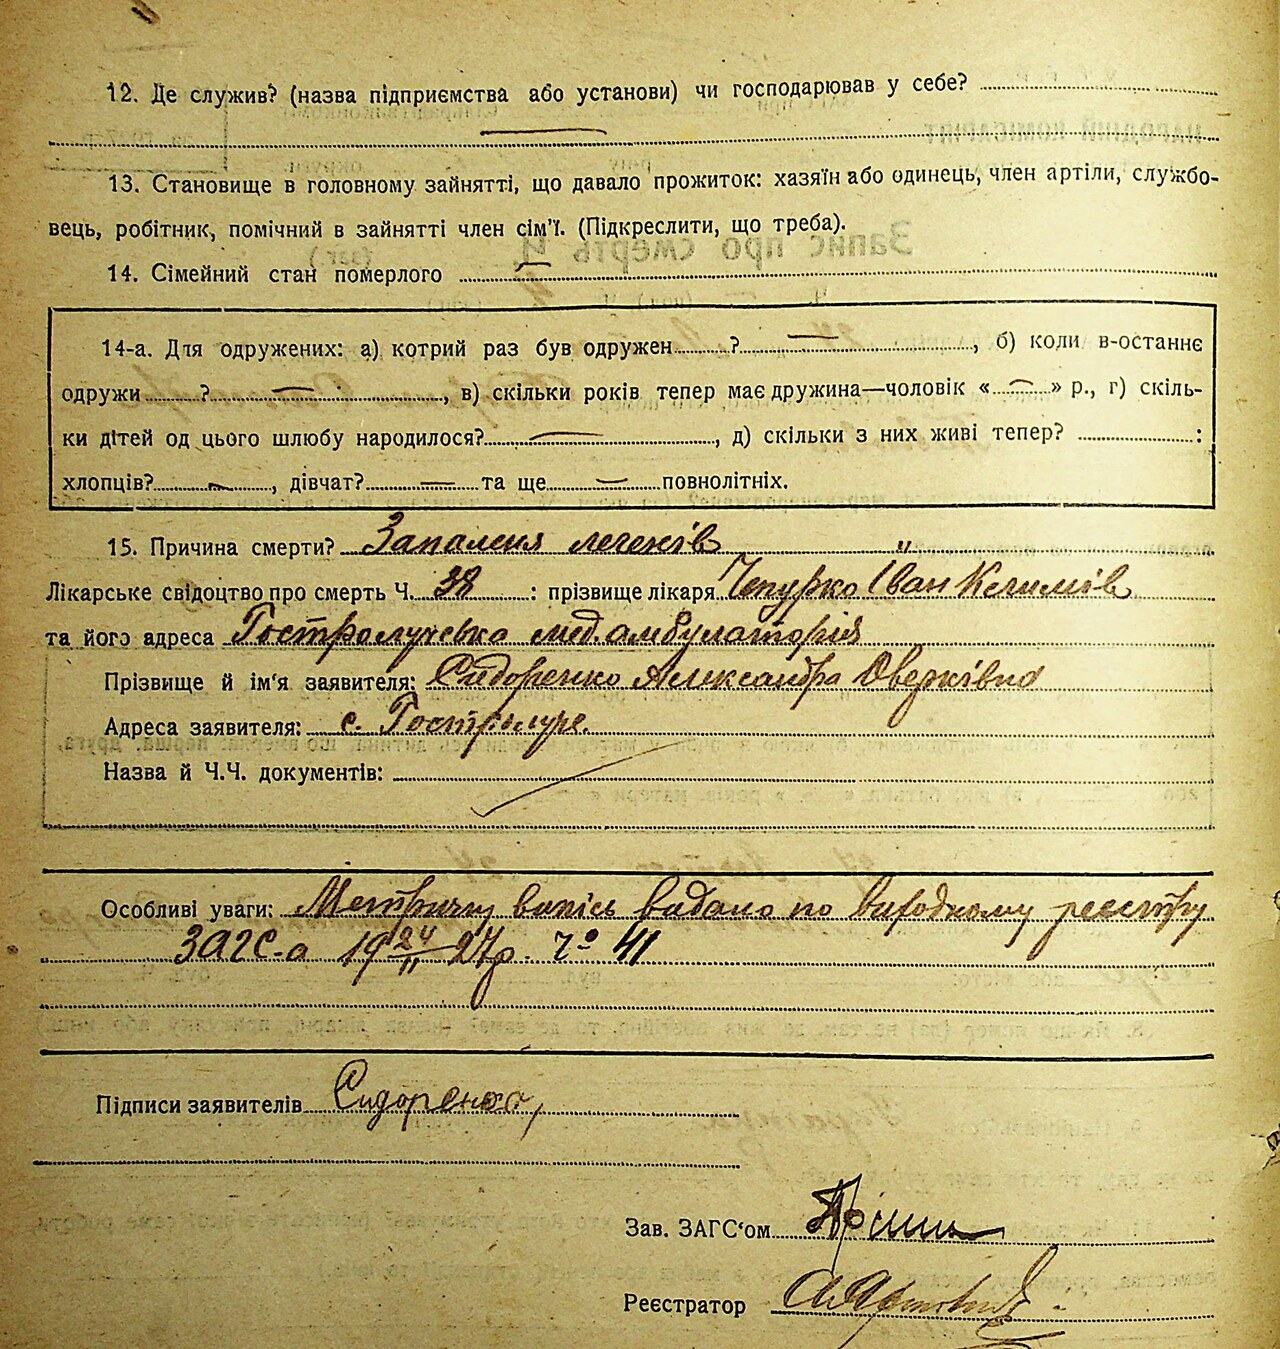 12. Де служив? (назва підприємства або установи) чи господарював у себе?
13. Становище в головному зайнятті, що давало прожиток: хазяїн або одинець, член артіли, службо-
вець, робітник, помічний в зайнятті член сім'ї. (Підкреслити, що треба).
14. Сімейний стан померлого
14-а. Для одружених: а) котрий раз був одружен ?, б) коли в-останнє
одружи ?, в) скільки років тепер має дружина—чоловік « » р., г) скіль-
ки дітей од цього шлюбу народилося?, д) скільки з них живі тепер? :
хлопців?, дівчат? та ще повнолітніх.
15. Причина смерти? Запаленя легенів "
Лікарське свідоцтво про смерть Ч. 38 : прізвище лікаря Чепурко Іван
та його адреса Гостролучська мед. амбулаторія
Прізвище й ім'я заявителя: Сидоренко Александра Оверківна
Адреса заявителя: с. Гостролуче.
Назва й Ч.Ч. документів:
Особливі уваги: Метричну випісь видано по виходному реєстру
ЗАГС-а 19 24/II 27р. Чо 41
Підписи заявителів Сидоренко,
Зав. ЗАГС'ом
Реєстратор